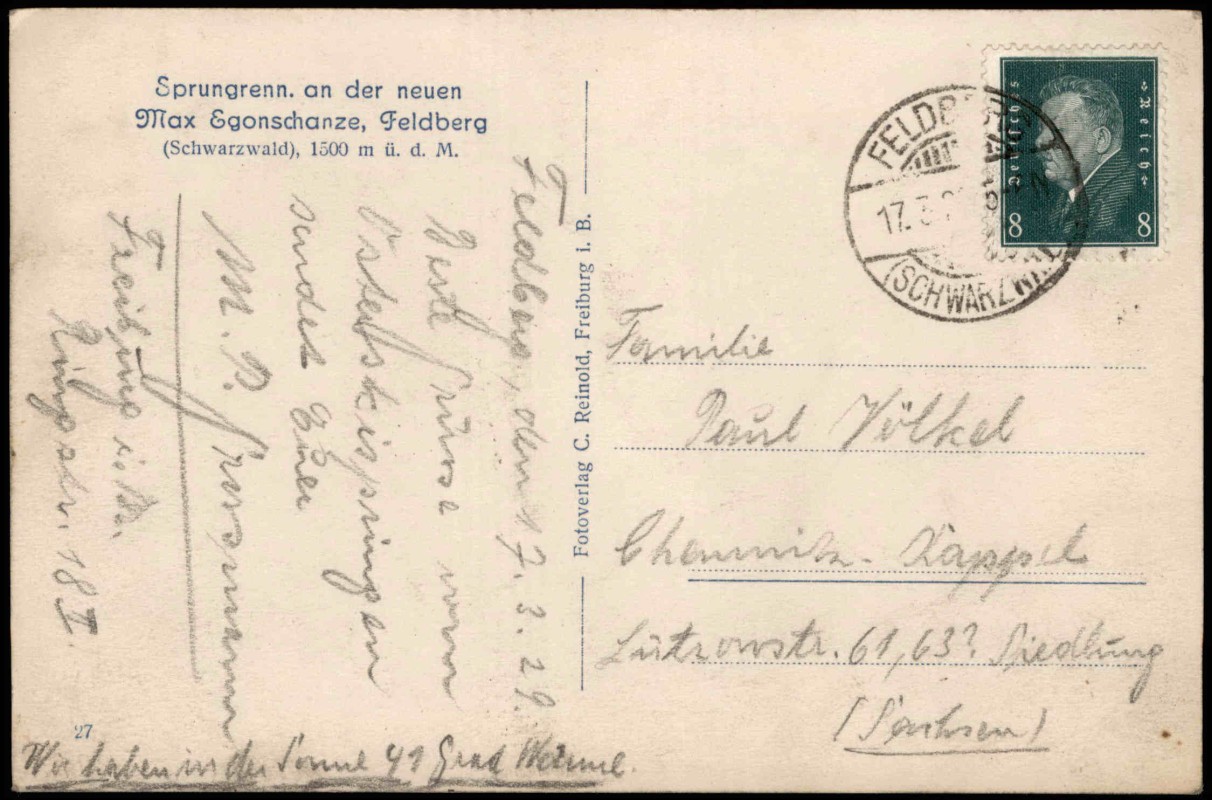 Sprungrenn. an der neuen
Max Egonschanze, Feldberg
(Schwarzwald), 1500 m ü. d. M.
Feldberg, den 17. 3. 29.
Beste Grüsse vom
Osterskispringen
sendet Euer
M. P. Grossmann
Freiburg i. B.
Ringstr. 18 II.
Wir haben in der Sonne 41 Grad Wärme.
27
Fotoverlag C. Reinold, Freiburg i. B.
Deutsches Reich
8 8
FELDBERG
17. 3.
(SCHWARZWALD)
Familie
Paul Völkel
Chemnitz-Kappel
Lützowstr. 61, 63? Siedlung
(Sachsen)